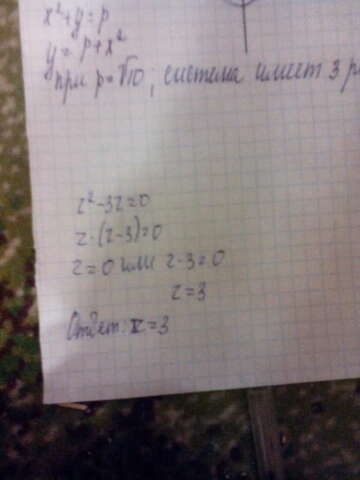 x²+y=p
y=p+x²
при p=√10; система имеет 3 р
z²-3z=0
z·(z-3)=0
z=0 или z-3=0
z=3
Ответ: x=3